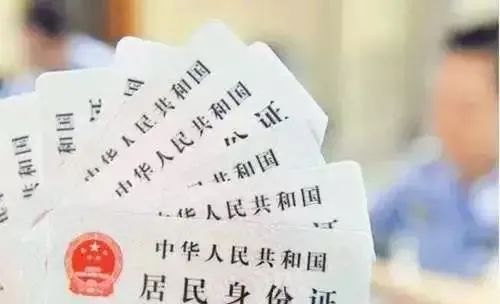 中华人民共和国
中华人民共和国
证
中华人民共和国
中华人民共和国
中华人民共和国
居民身份证